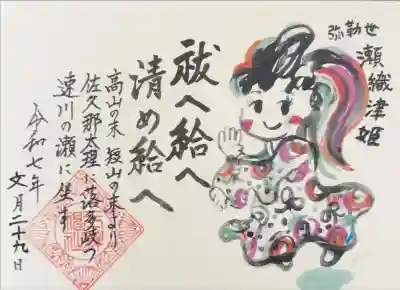 弥勒世
瀬織津姫
祓へ給へ
清め給へ
高山の末 短山の末より
佐久那太理に落多岐つ
速川の瀬に坐す
令和七年
文月二十九日